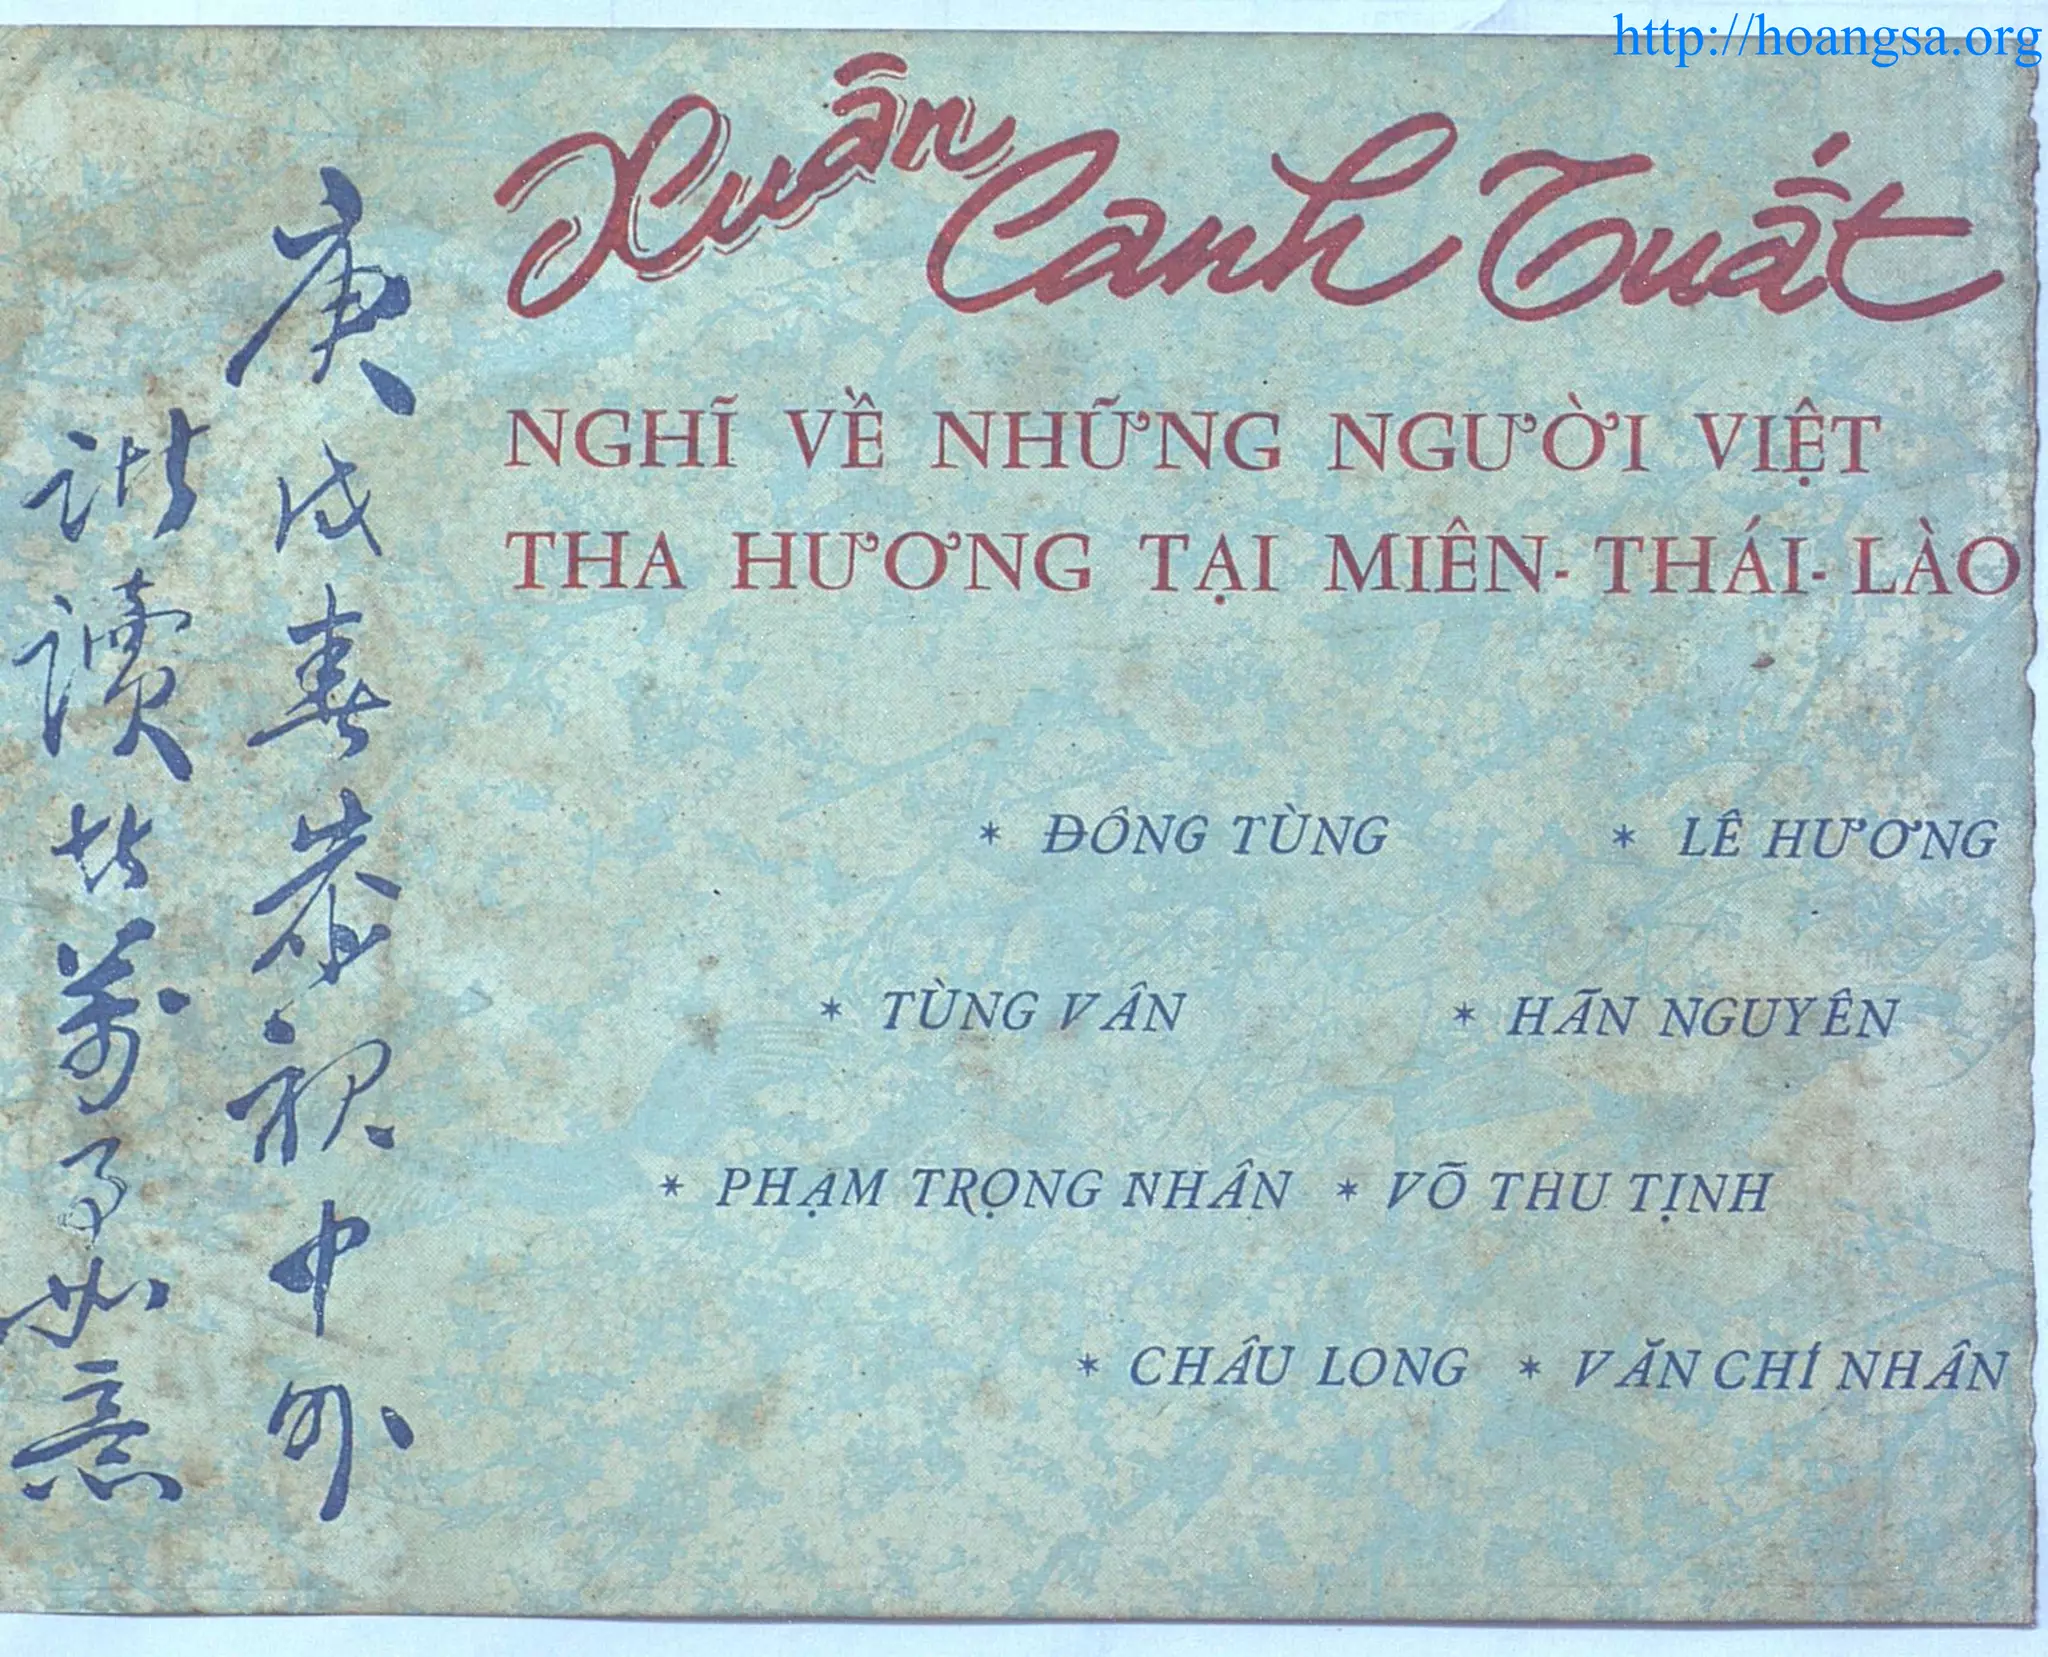 http://hoangsa.org
Xuân Canh Tuất
NGHĨ VỀ NHỮNG NGƯỜI VIỆT
THA HƯƠNG TẠI MIÊN-THÁI-LÀO
* ĐÔNG TÙNG * LÊ HƯƠNG
* TÙNG VÂN * HÃN NGUYÊN
* PHẠM TRỌNG NHÂN * VÕ THU TỊNH
* CHÂU LONG * VĂN CHÍ NHÂN
庚戌春恭祝中外
諸讀者萬事如意